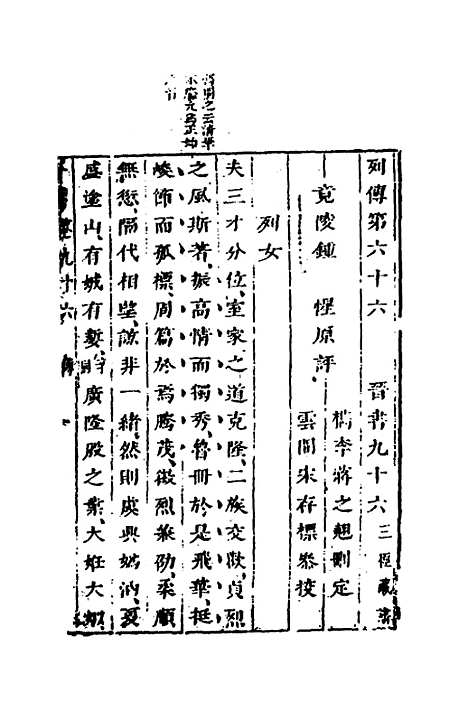 列傳第六十六 晉書九十六 三徑藏書
竟陵鍾惺原評
檇李蔣之翹刪定
雲間宋存標叅授
列女
夫三才分位室家之道克隆二族交歡貞烈
之風斯著振高情而獨秀魯冊於是飛華挺
峻節而孤標周篇於焉騰茂徽烈兼劭柔順
無愆隔代相望諒非一緒然則虞興媯汭夏
盛塗山有娀有㜪廣隆殷之業大姙大姒